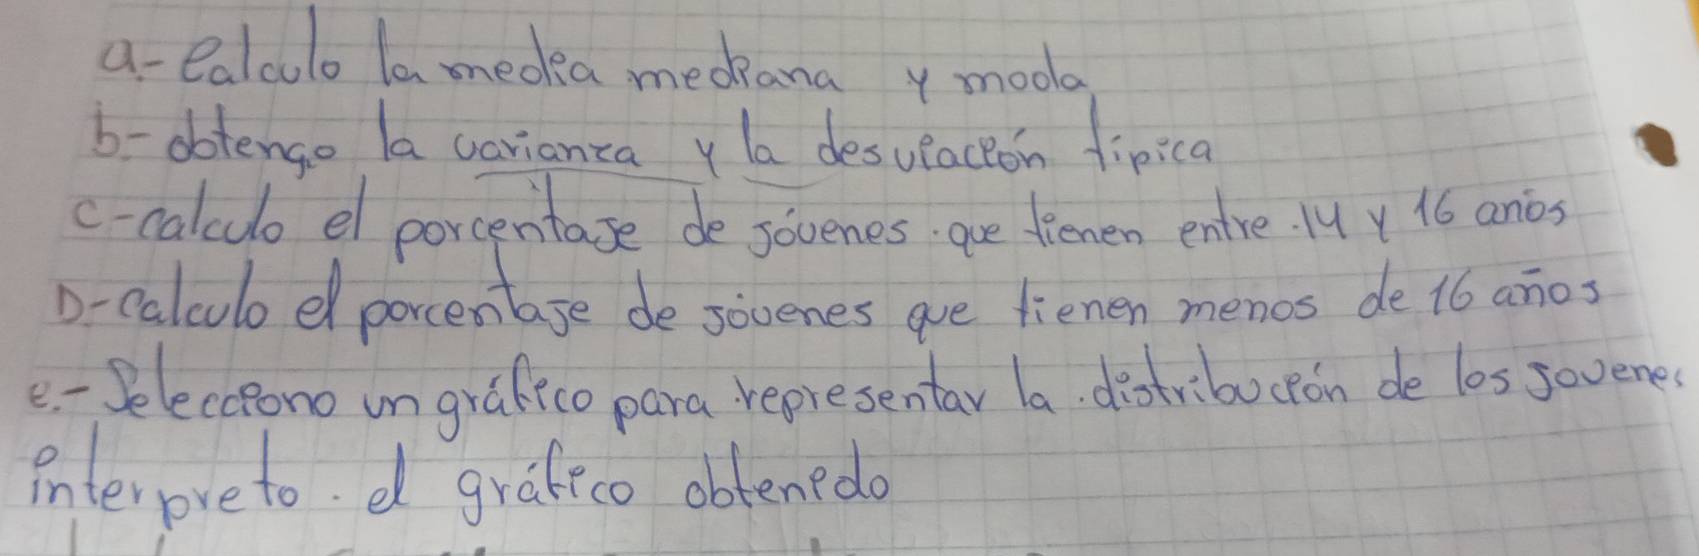 a.- Calculo la media mediana y moda
b.- obtengo la varianza y la desviación típica
c- calculo el porcentaje de jóvenes que tienen entre 14 y 16 años
D- calculo el porcentaje de jóvenes que tienen menos de 16 años
e.- Selecciono un gráfico para representar la distribución de los jovenes
interpreto el gráfico obtenido